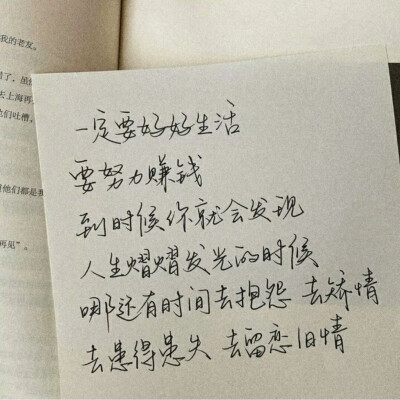 我的老友。
去上海再
们吐槽，
他们都是
再见”。
一定要好好生活
要努力赚钱
到时候你就会发现
人生熠熠发光的时候
哪还有时间去抱怨 去矫情
去患得患失 去留恋旧情